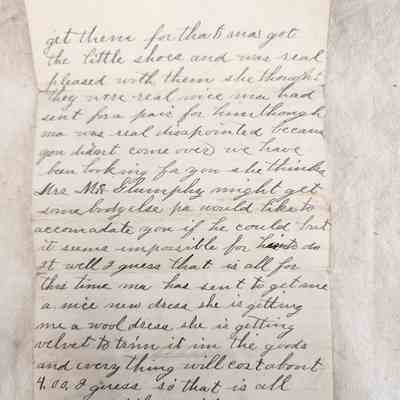 get them for that ma got
the little shoes and was real
pleased with them she thought
they were real nice ma had
sent for a pair for him though
ma was real disapointed becaus
you didnt come over we have
been looking for you she thinks
Mrs. Mc Glumphy might get
somebody else pa would like to
accomadate you if he could but
it seems impossible for him to do
it well I guess that is all for
this time ma has sent to get me
a nice new dress she is getting
me a wool dress she is getting
velvet to trim it im the goods
and everything will cost about
4.00, I guess so that is all